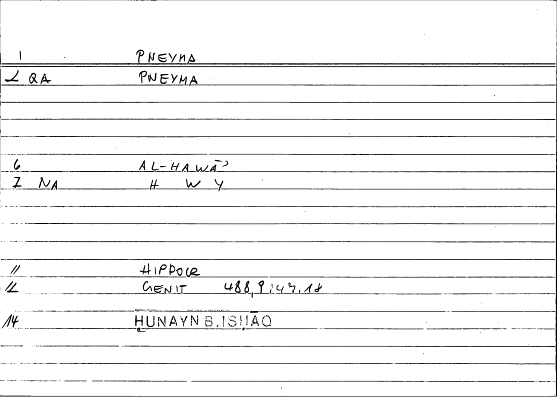 1 PNEYMA
2 QA PNEYMA
6 AL-HAWĀʾ
7 NA H W Y
11 HIPPOCR
12 GENIT 488,9:47.18
14 ḤUNAYN B. ISḤĀQ